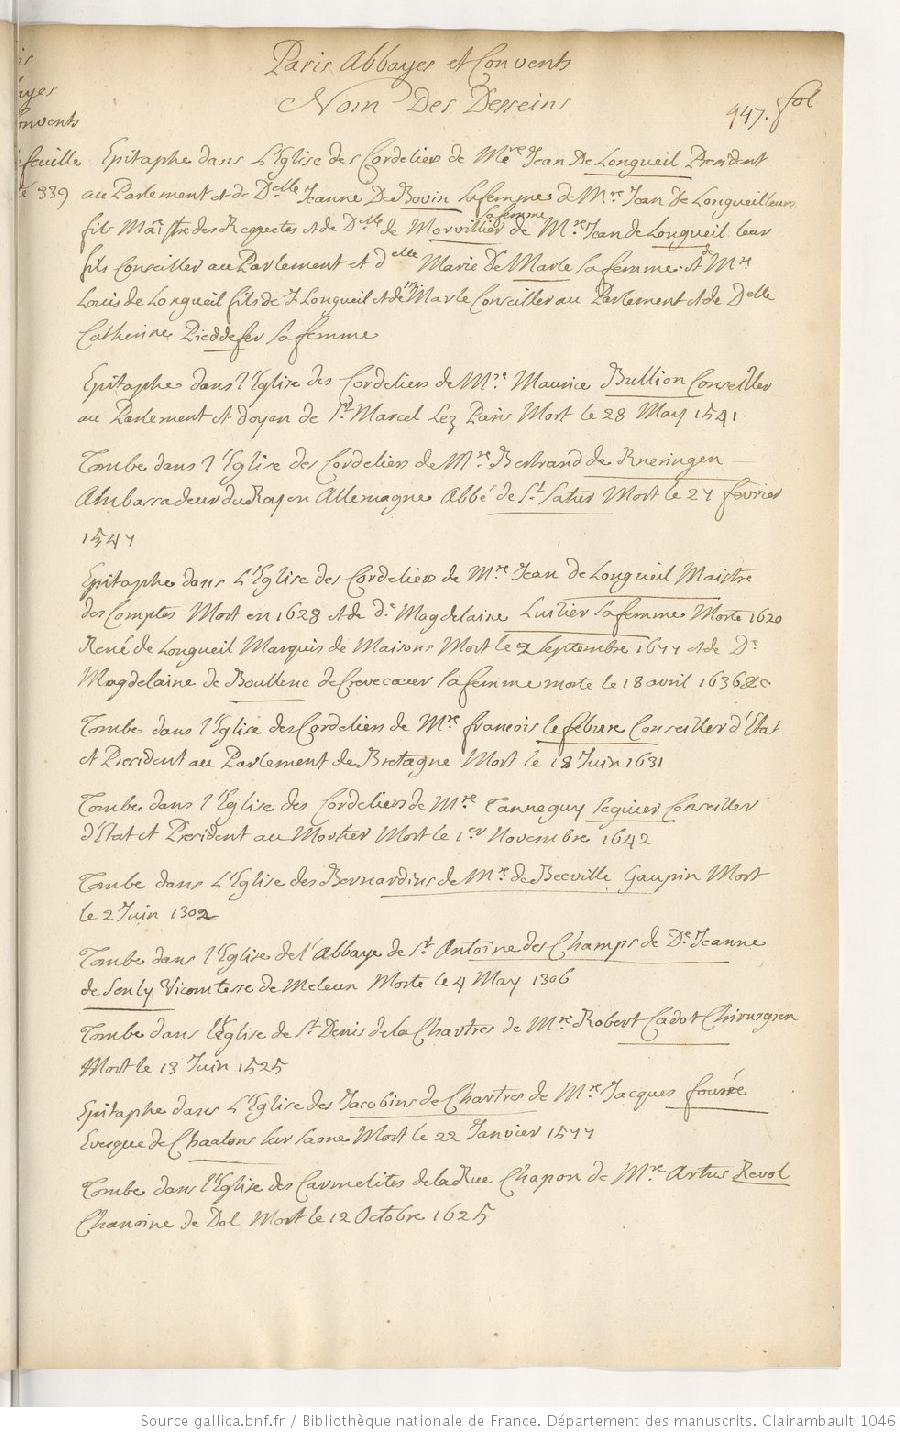 Paris Abbayes et Convents
Nom Des Desseins
947. fol
Epitaphe dans L'Eglise des Cordeliers de Mre Jean De Longueil President
au Parlement et de Delle Jeanne De Bouin sa femme de Mre Jean de Longueil leurs
fils Maistre des Requestes et de Delle de Morvillier sa femme de Mre Jean de Longueil leur
fils Conseiller au Parlement et delle Marie de Marle sa femme et Mre
Louis de Longueil fils de J Longueil et de M Marle Conseiller au Parlement et de Delle
Catherine Pieddefer sa femme
Epitaphe dans l'Eglise des Cordeliers de Mre Maurice Bullion Conseiller
au Parlement et doyen de St Marcel Lez Paris Mort le 28 May 1541
Tombe dans l'Eglise des Cordeliers de Mre Bertrand de Rneringen
Ambassadeur du Roy en Allemagne Abbé de St Satur Mort le 27 fevrier
1547
Epitaphe dans L'Eglise des Cordeliers de Mre Jean de Longueil Maistre
des Comptes Mort en 1628 et de De Magdelaine Luitier sa femme Morte 1620
René de Longueil Marquis de Maisons Mort le 7 Septembre 1677 et de De
Magdelaine de Boullenc de Crevecoeur sa femme morte le 18 avril 1636 &c
Tombe dans l'Eglise des Cordeliers de Mre francois le febure Conseiller d'Etat
et President au Parlement de Bretagne Mort le 18 Juin 1631
Tombe dans l'Eglise des Cordeliers de Mre Tanneguy Seguier Conseiller
d'Etat et President au Mortier Mort le 1er Novembre 1642
Tombe dans L'Eglise des Bernardins de Mre de Beeville Gaupin Mort
le 2 Juin 1302
Tombe dans l'Eglise de l'Abbaye de St Antoine des Champs de De Jeanne
de Senly Vicomtesse de Meleun Morte le 4 May 1306
Tombe dans l'Eglise de St Denis de la Chartres de Mre Robert Cadot Chirurgien
Mort le 13 Juin 1525
Epitaphe dans L'Eglise des Jacobins de Chartres de Mre Jacques fourée
Evesque de Chaalons sur Saone Mort le 22 Janvier 1577
Tombe dans l'Eglise des Carmelites de la Rue Chapon de Mre Artus Revol
Chanoine de Dol Mort le 12 Octobre 1625
feuille
339
Source gallica.bnf.fr / Bibliothèque nationale de France. Département des manuscrits. Clairambault 1046